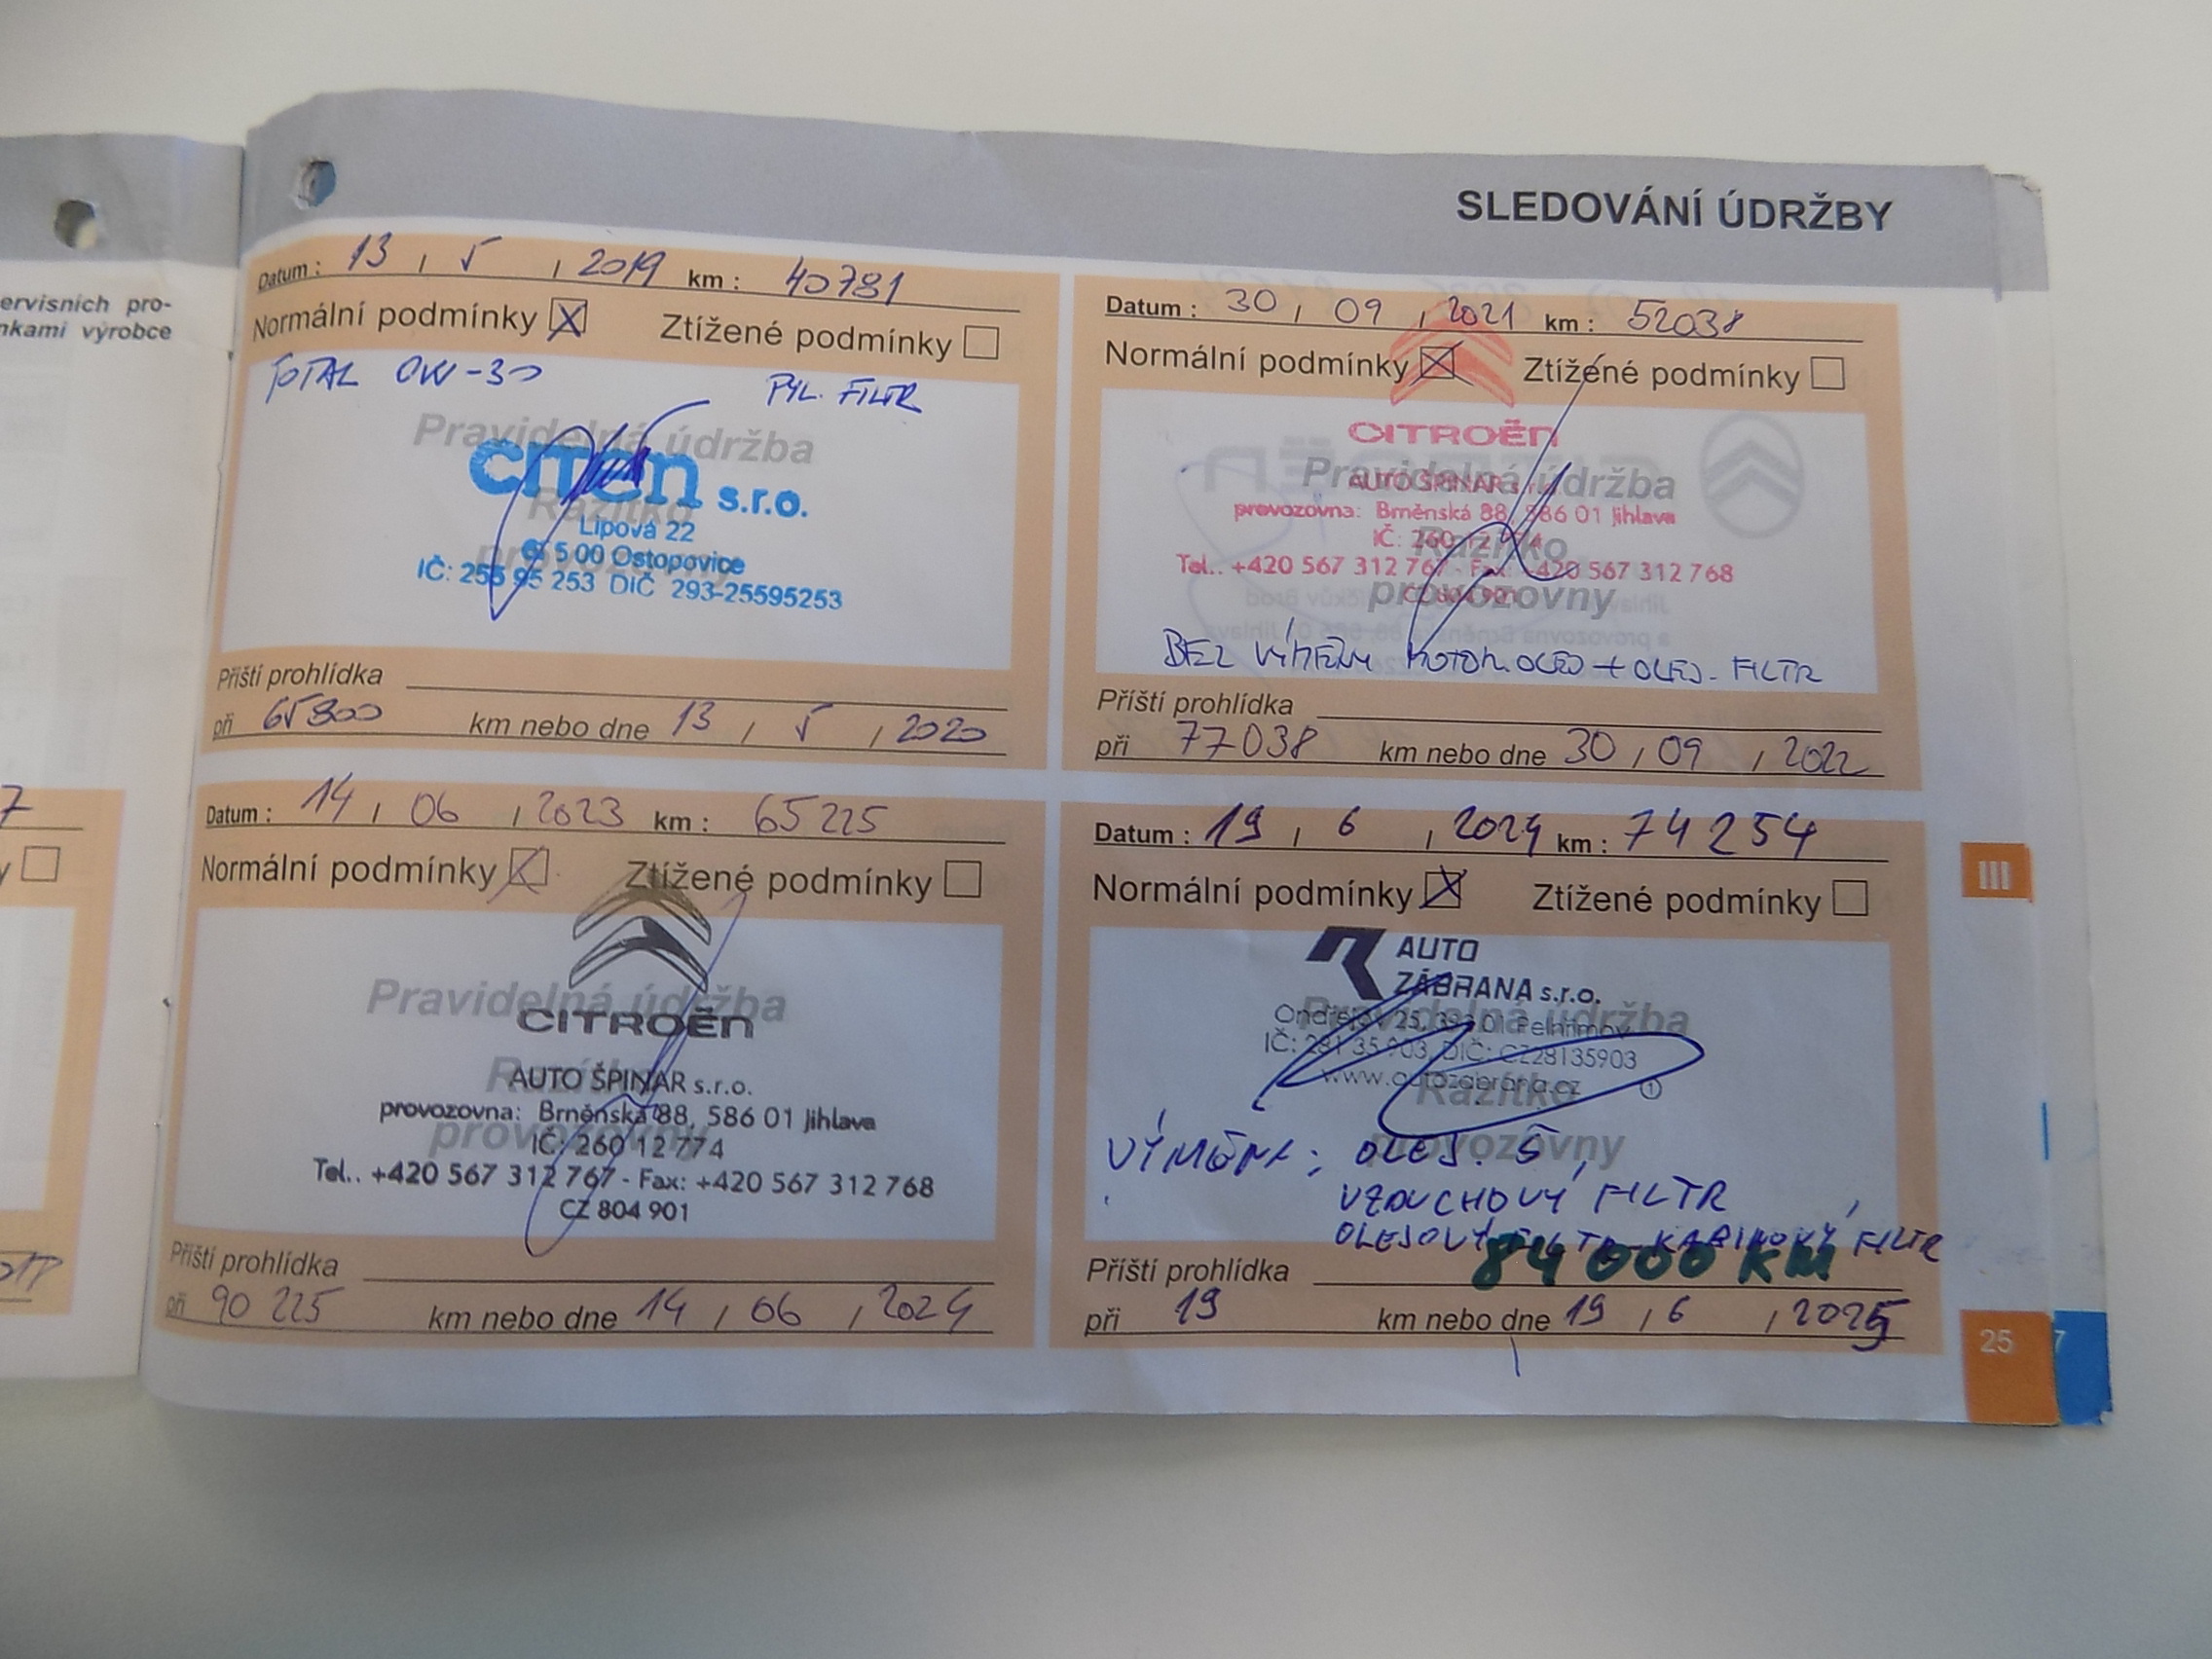 SLEDOVÁNÍ ÚDRŽBY
ervisních pro-
nkami výrobce
Datum : 13 , 5 , 2019 km : 40781
Normální podmínky X Ztížené podmínky
TOTAL 0W-30 PYL. FILTR
Pravidelná údržba
Razítko
provozovny
CITEN s.r.o.
Lipová 22
500 Ostopovice
IČ: 255 95 253 DIČ 293-25595253
Příští prohlídka
při 65800 km nebo dne 13 , 5 , 2020
Datum : 30 , 09 , 2021 km : 52038
Normální podmínky X Ztížené podmínky
CITROËN
Pravidelná údržba
Razítko
provozovny
AUTO ŠPINAR s.r.o.
provozovna: Brněnská 88, 586 01 Jihlava
IČ: 260 12 774
Tel.. +420 567 312 767 - Fax: +420 567 312 768
CZ 804 901
BEZ VÝMĚNY MOTOR. OLEJ + OLEJ. FILTR
Příští prohlídka
při 77038 km nebo dne 30 , 09 , 2022
Datum : 14 , 06 , 2023 km : 65225
Normální podmínky X Ztížené podmínky
Pravidelná údržba
Razítko
provozovny
CITROËN
AUTO ŠPINAR s.r.o.
provozovna: Brněnská 88, 586 01 Jihlava
IČ: 260 12 774
Tel.. +420 567 312 767 - Fax: +420 567 312 768
CZ 804 901
Příští prohlídka
při 90 225 km nebo dne 14 , 06 , 2024
Datum : 19 , 6 , 2024 km : 74254
Normální podmínky X Ztížené podmínky
AUTO
ZÁBRANA s.r.o.
Pravidelná údržba
Razítko
provozovny
Ondřejov 25, 393 01 Pelhřimov
IČ: 281 35 903, DIČ: CZ28135903
www.autozabrana.cz 1
VÝMĚNA: OLEJ.
VZDUCHOVÝ FILTR
OLEJOVÝ FILTR KABINOVÝ FILTR
84 000 KM
Příští prohlídka
při 19 km nebo dne 19 , 6 , 2025
III
25
7